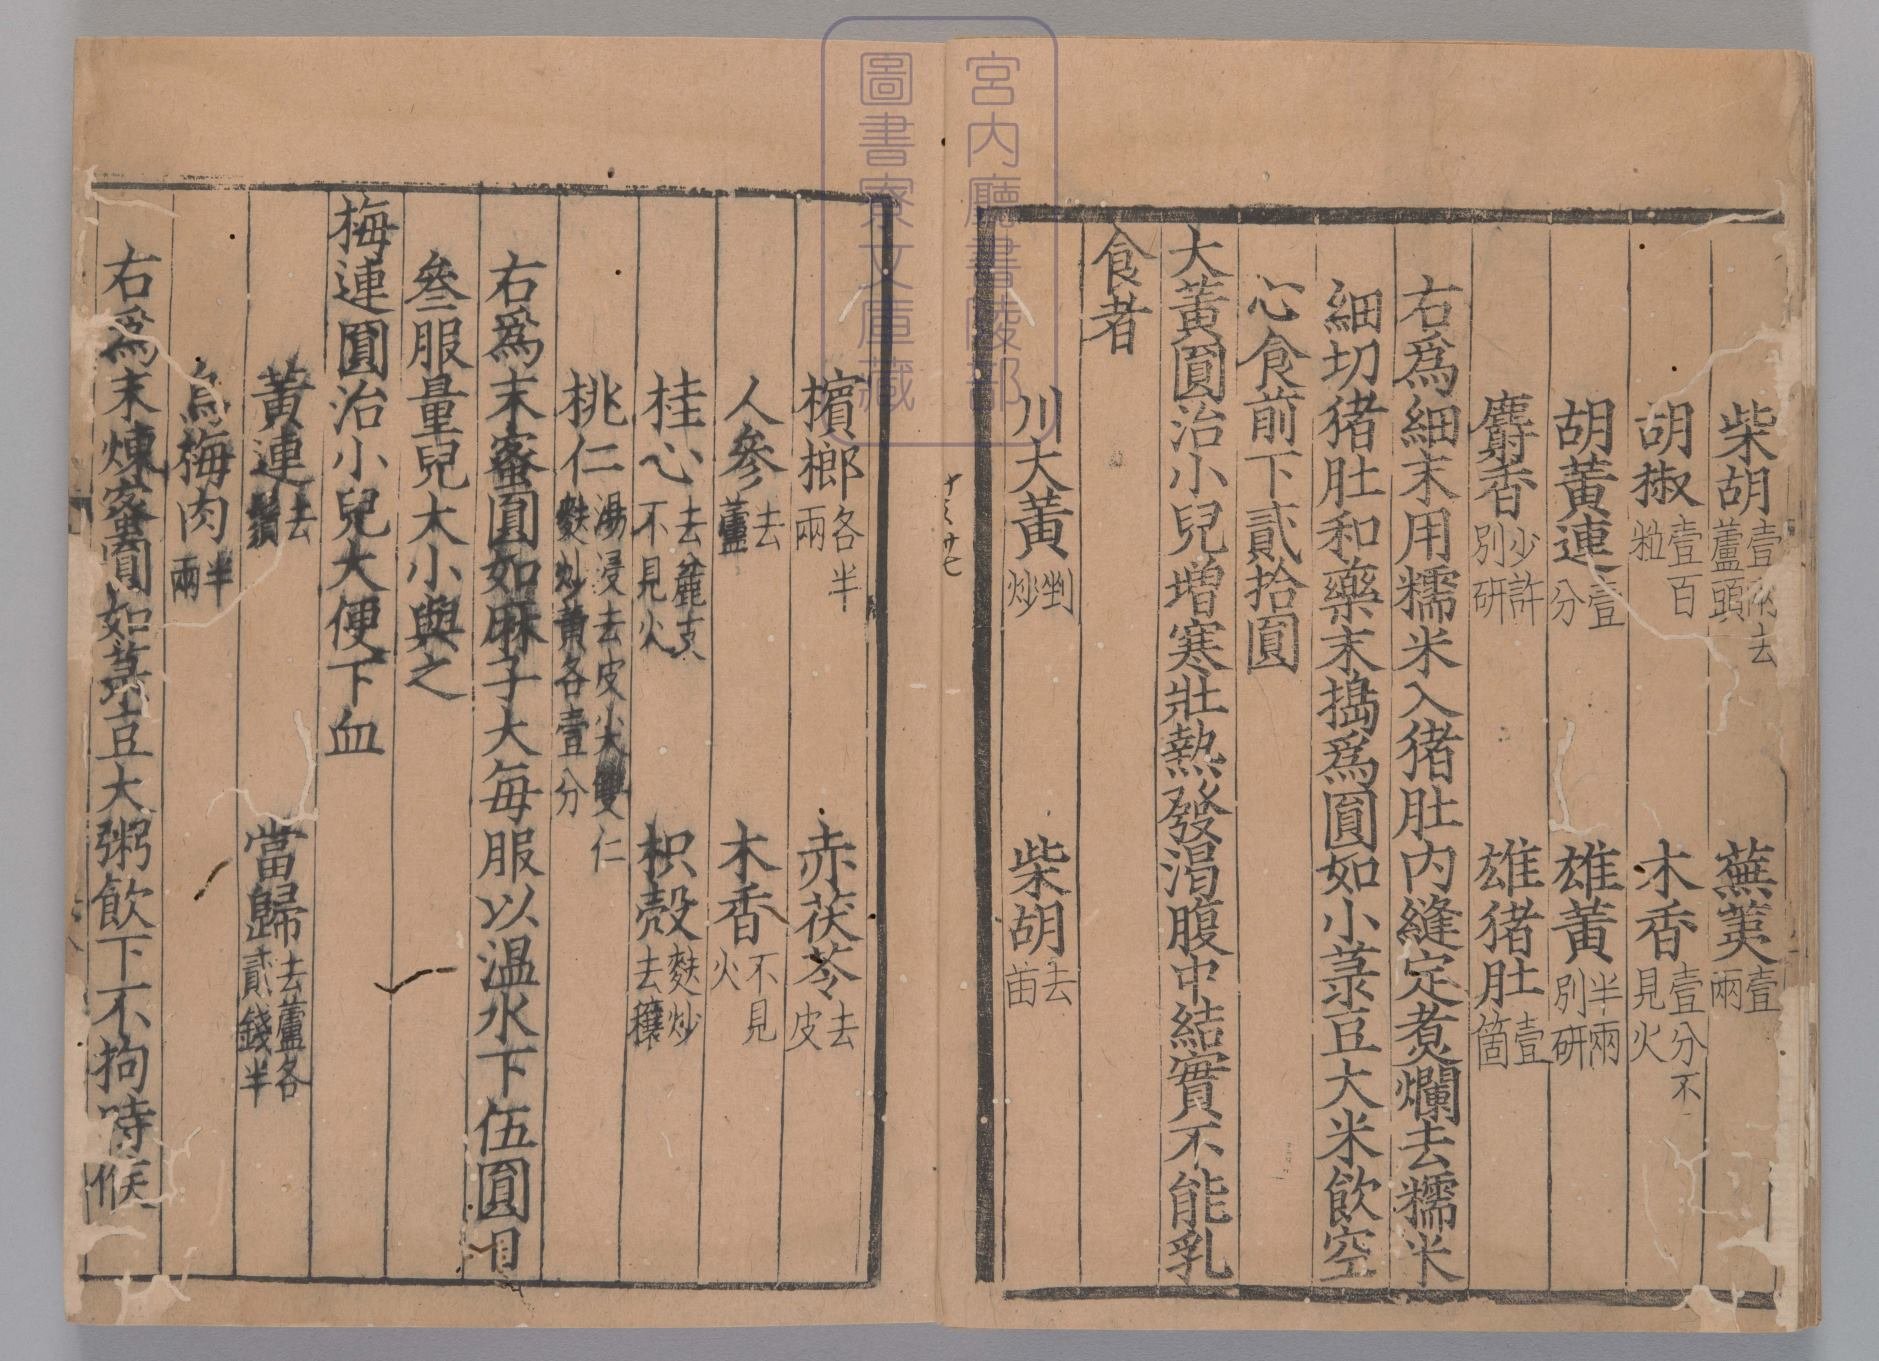 柴胡壹兩去蘆頭　蕪荑壹兩
胡椒壹百粒　木香壹分不見火
胡黃連壹分　雄黃半兩別研
麝香少許別研　雄猪肚壹箇
右爲細末用糯米入猪肚内縫定煮爛去糯米
細切猪肚和藥末搗爲圓如小菉豆大米飲空
心食前下貳拾圓
大黃圓治小兒增寒壯熱發渴腹中結實不能乳
食者
川大黃剉炒　柴胡去苗
檳榔各半兩　赤茯苓去皮
人參去蘆　木香不見火
桂心去麄支不見火　枳殼麩炒去穰
桃仁湯浸去皮尖雙仁麩炒黃各壹分
右爲末蜜圓如麻子大每服以温水下伍圓日
叄服量兒大小與之
梅連圓治小兒大便下血
黃連去鬚　當歸去蘆各貳錢半
烏梅肉半兩
右爲末煉蜜圓如菉豆大粥飲下不拘時候
宮内廳書陵部
圖書寮文庫藏